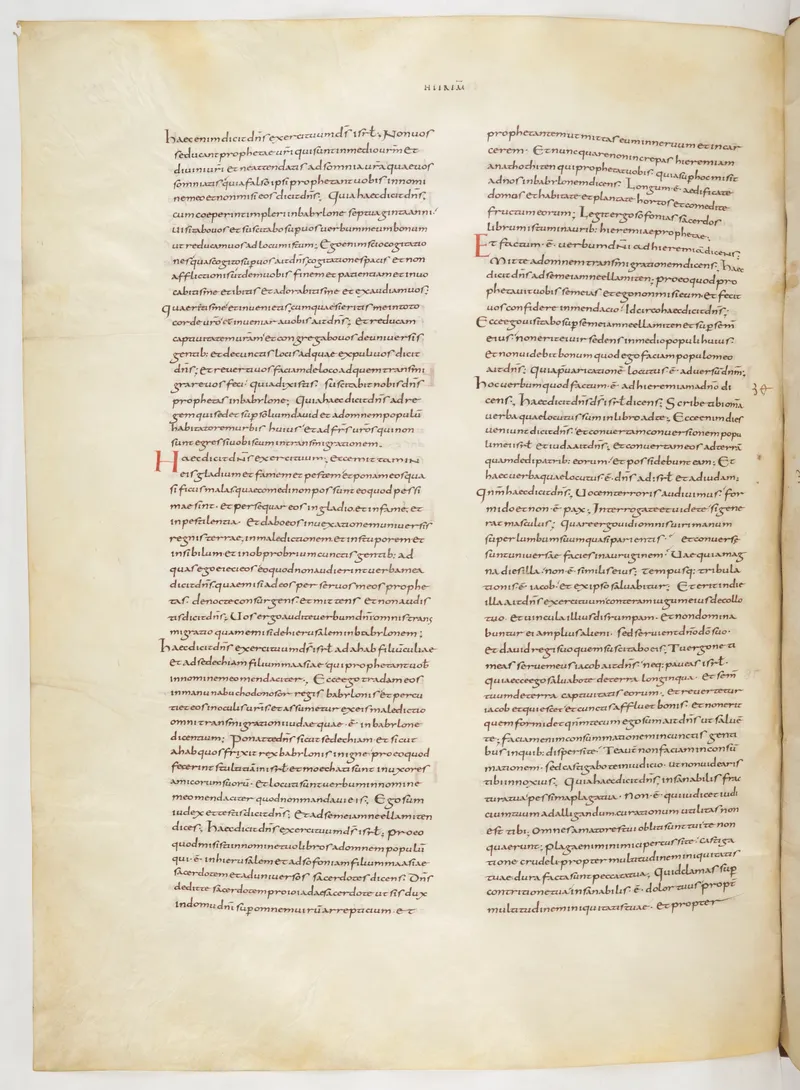 HIEREM̄
haec enim dicit dn̄s exercituum d̄s isr̄t; Non uos
seducant prophetae uri qui sunt in medio urm̄ et
diuini uri et ne attendatis ad somnia ura quae uos
somniatis quia falso ipsi prophetant uobis in nomi
ne meo et non misi eos dicit dn̄s; Quia haec dicit dn̄s;
cum coeperint impleri in babylone septuaginta anni
uisitabo uos et suscitabo sup uos uerbum meum bonum
ut reducam uos ad locum istum; Ego enim scio cogitatio
nes quas cogito sup uos ait dn̄s cogitationes pacis et non
afflictionis ut dem uobis finem et patientiam et inuo
cabitis me et ibitis et adorabitis me et exaudiam uos;
quaeretis me et inuenietis cum quaesieritis me in toto
corde uro et inueniar a uobis ait dn̄s; et reducam
captiuitatem uram et congregabo uos de uniuersis
gentib; et de cunctis locis ad quae expuli uos dicit
dn̄s; et reuerti uos faciam de loco ad quem transmi
grare uos feci quia dixistis; suscitabit nobis dn̄s
prophetas in babylone; Quia haec dicit dn̄s ad re
gem qui sedet sup solium dauid et ad omnem populū
habitatorem urbis huius et ad frs uros qui non
sunt egressi uobiscum in transmigrationem.
Haec dicit dn̄s exercituum; ecce mittam in
eis gladium et famem et pestem et ponam eos qua
si ficus malas quae comedi non possunt eo quod pessi
mae sint. et persequar eos in gladio et in fame; et
in pestilentia. et dabo eos in uexationem uniuersis
regnis terrae; in maledictionem et in stuporem et
in sibilum et in obprobrium cunctis gentib; ad
quas ego eieci eos eo quod non audierint uerba mea
dicit dn̄s quae misi ad eos per seruos meos prophe
tas de nocte consurgens et mittens et non audis
tis dicit dn̄s; Uos ergo audite uerbum dn̄i omnis trans
migratio quam emisi de hierusalem in babylonem;
haec dicit dn̄s exercituum d̄s isr̄t ad ahab filiū culiae
et ad sedechiam filium maasiae qui prophetant uob̄
in nomine meo mendaciter; Ecce ego tradam eos
in manu nabuchodonosor regis babylonis et percu
tiet eos in oculis uris et assumetur ex eis maledictio
omni transmigrationi iudae quae. ē. in babylone
dicentium; Ponat te dn̄s sicut sedechiam et sicut
ahab quos frixit rex babylonis in igne pro eo quod
fecerint stultitiā in isr̄t et moechati sunt in uxores
amicorum suorū. et locuti sunt uerbum in nomine
meo mendaciter quod non mandaui eis; Ego sum
iudex et testis dicit dn̄s; et ad semeiam neellamiten
dices; haec dicit dn̄s exercituum d̄s isr̄t; pro eo
quod misisti in nomine tuo libros ad omnem populū
qui. ē. in hierusalem et ad sofoniam filium maasiae
sacerdotem et ad uniuersos sacerdotes dicens; Dn̄s
dedit te sacerdotem pro ioiadae sacerdote ut sis dux
in domu dn̄i sup omnem uirū arrepticium. et
prophetantem ut mittas eum in neruum et in car
cerem. Et nunc quare non increpas hieremiam
anathothiten qui prophetat uobis quia sup hoc misit
ad nos in babylonem dicens; Longum. ē. aedificate
domos et habitate et plantate hortos et comedite
fructum eorum; Legit ergo sofonias sacerdos
librum istum in aurib; hieremiae prophetae;
Et factum. ē. uerbum dn̄i ad hieremiā dicens;
Mitte ad omnem transmigrationem dicens; haec
dicit dn̄s ad semeiam neellamiten; pro eo quod pro
phetauit uobis semeias et ego non misi eum et fecit
uos confidere in mendacio. Idcirco haec dicit dn̄s;
Ecce ego uisitabo sup semeiam neellamiten et sup sem̄
eius non erit ei uir sedens in medio populi huius
et non uidebit bonum quod ego faciam populo meo
ait dn̄s; quia praeuaricationē locutus. ē. aduersū dn̄m;
hoc uerbum quod factum. ē. ad hieremiam a dn̄o di
cens; haec dicit dn̄s d̄s isr̄t dicens; Scribe tibi omīa
uerba quae locutus sum in libro ad te; Ecce enim dies
ueniunt dicit dn̄s et conuertam conuersionem popu
li mei isr̄t et iuda ait dn̄s; et conuertam eos ad terrā
quam dedi patrib; eorum et possidebunt eam; Et
haec uerba quae locutus. ē. dn̄s ad isr̄t et ad iudam;
qnm̄ haec dicit dn̄s; Uocem terroris audiuimus for
mido et non. ē. pax; Interrogate et uidete si gene
rat masculus; Quare ergo uidi omnis uiri manum
super lumbum suum quasi parientis. et conuersę
sunt uniuersae facies in auruginem. Uae quia mag
na dies illa non. ē. similis eius; Tempusq; tribula
tionis. ē. iacob et ex ipso saluabitur; Et erit in die
illa ait dn̄s exercituum conteram iugum eius de collo
tuo. et uincula illius disrumpam. et non domina
buntur ei amplius alieni. sed seruient dn̄o dō suo.
et dauid regi suo quem suscitabo eis; Tu ergo ne ti
meas serue meus iacob ait dn̄s. neq; paueas isr̄t.
quia ecce ego saluabo te de terra longinqua. et sem̄
tuum de terra captiuitatis eorum. et reuertetur
iacob et quiescet et cunctis affluet bonis. et non erit
quem formidet qnm̄ tecum ego sum ait dn̄s ut saluē
te; faciam enim consummationem in cunctis genti
bus in quib; dispersi te. Te aut̄ non faciam in consū
mationem. sed castigabo te in iudicio. ut non uidearis
tibi innoxius; Quia haec dicit dn̄s; insanabilis frac
tura tua. pessima plaga tua. Non. ē. qui iudicet iudi
cium tuum ad alligandum. curationum utilitas non
est tibi. Omnes amatores tui obliti sunt tui te non
quaerunt; plaga enim inimici percussi te. castiga
tione crudeli propter multitudinem iniquitatis
tuae dura facta sunt peccata tua; Quid clamas sup
contritione tua insanabilis. ē. dolor tuus propt̄
multitudinem iniquitatis tuae. et propter